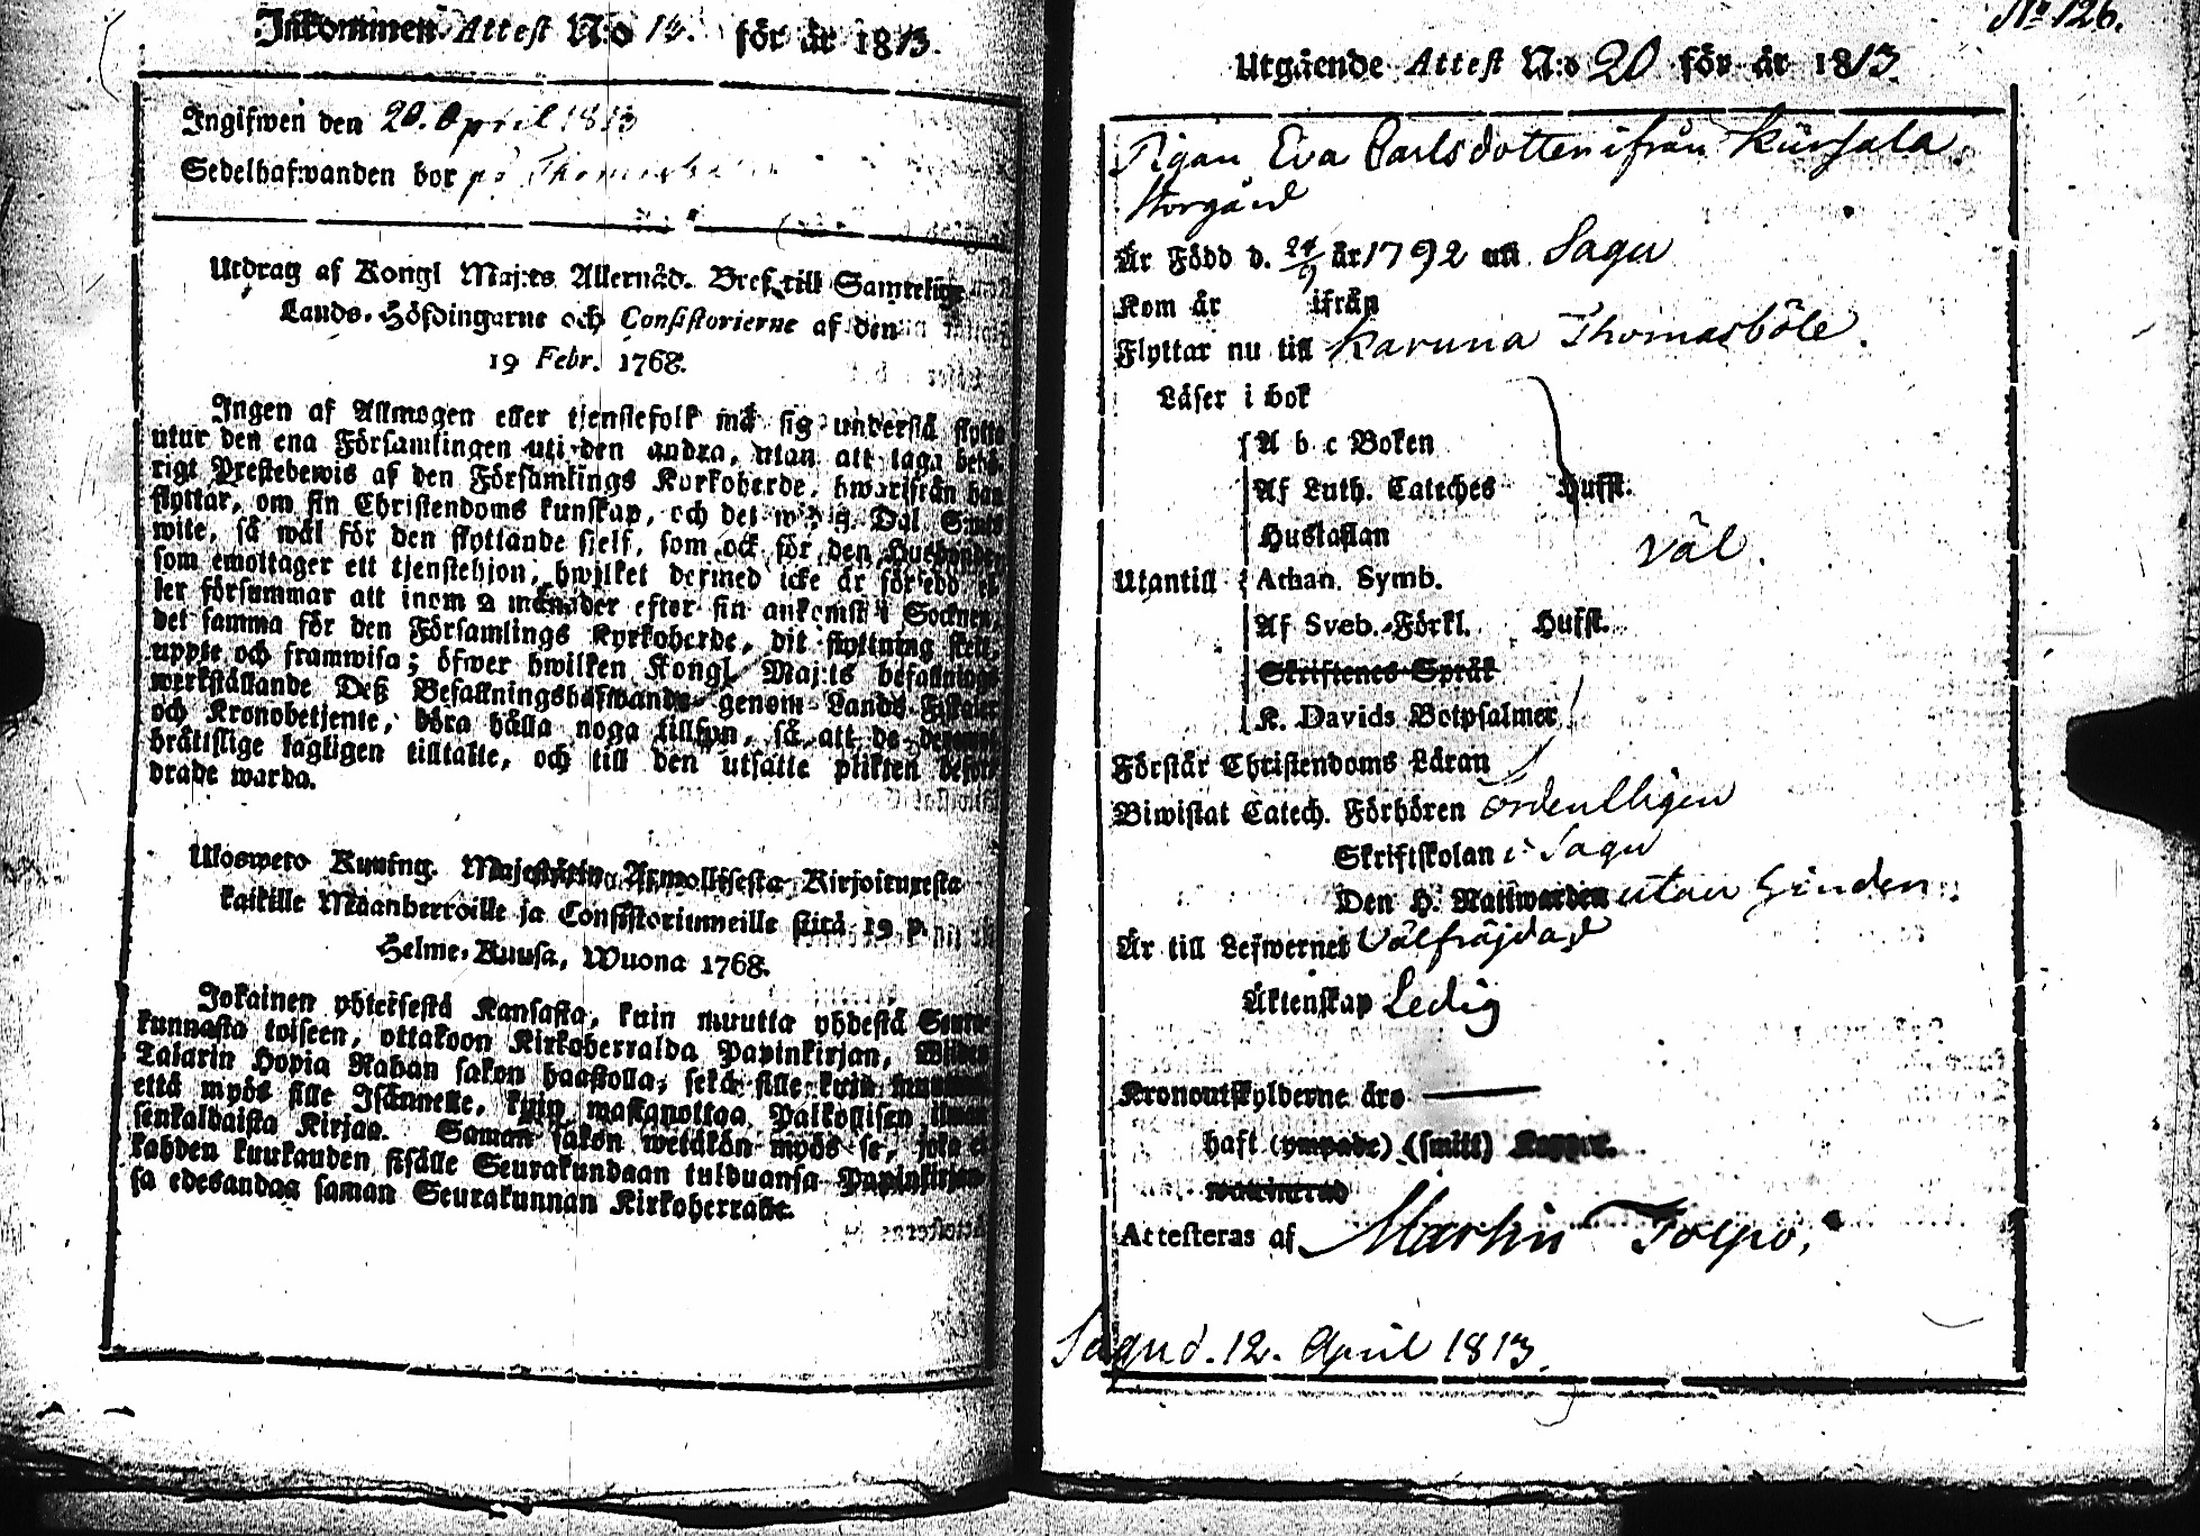 Inkommen Attest N:o 14. för år 1813.
Ingifwen den 20. April 1813
Sedelhafwanden bor på Thomasböle
Utdrag af Kongl Maj:ts Allernåd. Bref till Samtelige
Lands-Höfdingarne och Consistorierne af den
19 Febr. 1768.
Ingen af Allmogen eller tjenstefolk må sig understå flytta
utur den ena Församlingen uti den andra, utan att taga behö-
rigt Prestebewis af den Församlings Kyrkoherde, hwarifrån han
flyttar, om sin Christendoms kunskap, och det wid 5 Dal. S:mts
wite, så wäl för den flyttande sjelf, som ock för den Husbonde,
som emottager ett tjenstehjon, hwilket dermed icke är försedd el-
ler försummar att inom 2 månader efter sin ankomst i Socknen,
det samma för den Församlings Kyrkoherde, dit flyttning skett,
uppte och framwisa; öfwer hwilken Kongl. Maj:ts befallnings
werkställande Deß Befallningshafwande genom Lands-Fiskaler
och Kronobetjente, böra hålla noga tillsyn, så att de deremot
brätslige lagligen tilltalte, och till den utsatte plikten befor-
drade warda.
Uloswето Kuning. Majestätin Armollisesta Kirjoituxesta
kaikille Maanherroille ja Consistoriumeille siitä 19 p.
Helme-Kuusa, Wuona 1768.
Jokainen yhteisestä Kansasta, kuin muutta yhdestä Seura-
kunnasta toiseen, ottakoon Kirkoherralda Papinkirjan, Wiiden
Talarin Hopia Rahan sakon haastolla, sekä sille kuin muutta
että myös sille Isännelle, kuin wastanottaa Palkollisen ilman
senkaldaista Kirjaa. Saman sakon wetäkön myös se, joka ei
kahden kuukauden sisälle Seurakundaan tulduansa Papinkirjan-
sa edesandaa saman Seurakunnan Kirkoherralle.
No 126.
Utgående Attest N:o 20 för år 1813.
Pigan Eva Carlsdotter ifrån Kürsala
Storgård
Är Född d. 24/9 år 1792 uti Sagu
Kom år ifrån
Flyttar nu till Karuna Thomasböle.
Läser i bok
A b c Boken
Af Luth. Cateches Hufst.
Hustaflan
väl.
Utantill Athan. Symb.
Af Sveb. Förkl. Hufst.
Skriftenes Språk
K. Davids Botpsalmer
Förstår Christendoms Läran
Biwistat Catech. Förhören ordentligen
Skriftskolan i Sagu
Den H. Nattwarden utan hinder.
Är till Lefwernet Välfräjdad
Äktenskap Ledig
Kronoutskylderne äro
haft (ympade) (smitt) Koppor.
Attesteras af Martin Tolpo.
Sagu d. 12. April 1813.